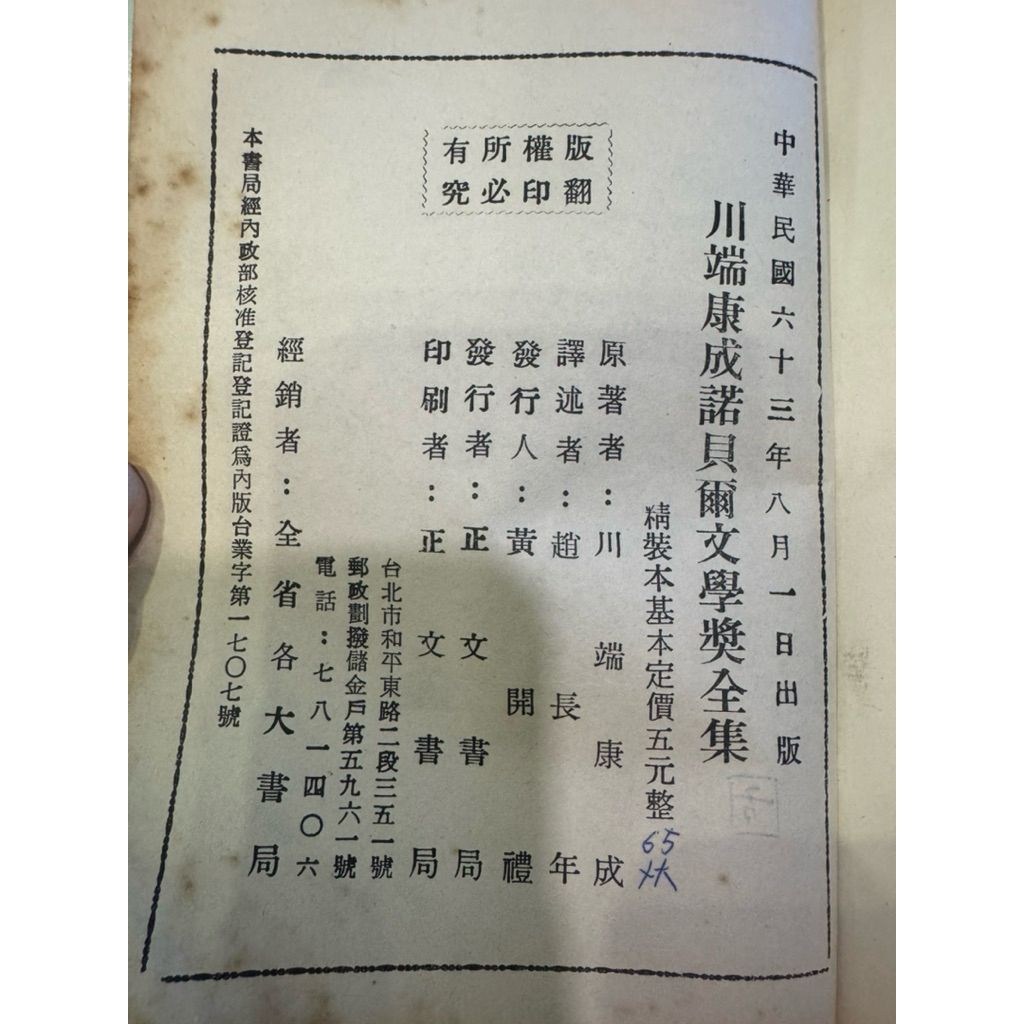 中華民國六十三年八月一日出版
川端康成諾貝爾文學獎全集
精裝本基本定價五元整
65
版權所有
翻印必究
原著者：川端康成
譯述者：趙長年
發行人：黃開禮
發行者：正文書局
印刷者：正文書局
台北市和平東路二段三五一號
郵政劃撥儲金戶第五九六一號
電話：七八一四〇六
經銷者：全省各大書局
本書局經內政部核准登記登記證爲內版台業字第一七〇七號